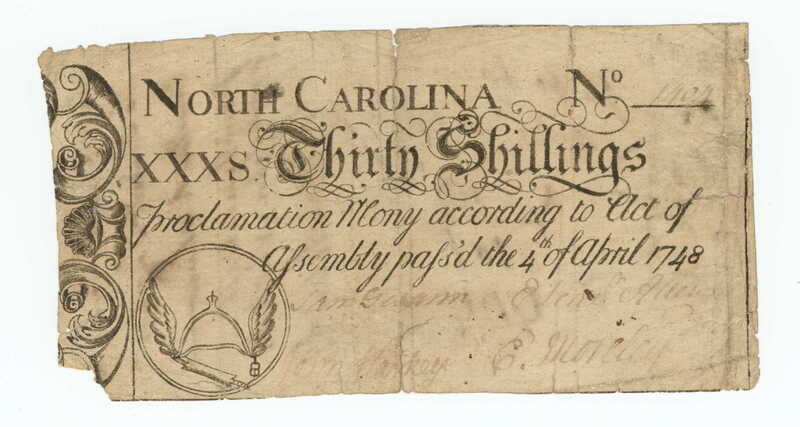 NORTH CAROLINA No
XXXS. Thirty Shillings
Proclamation Mony according to Act of
Assembly pass'd the 4th of April 1748
E. Moseley